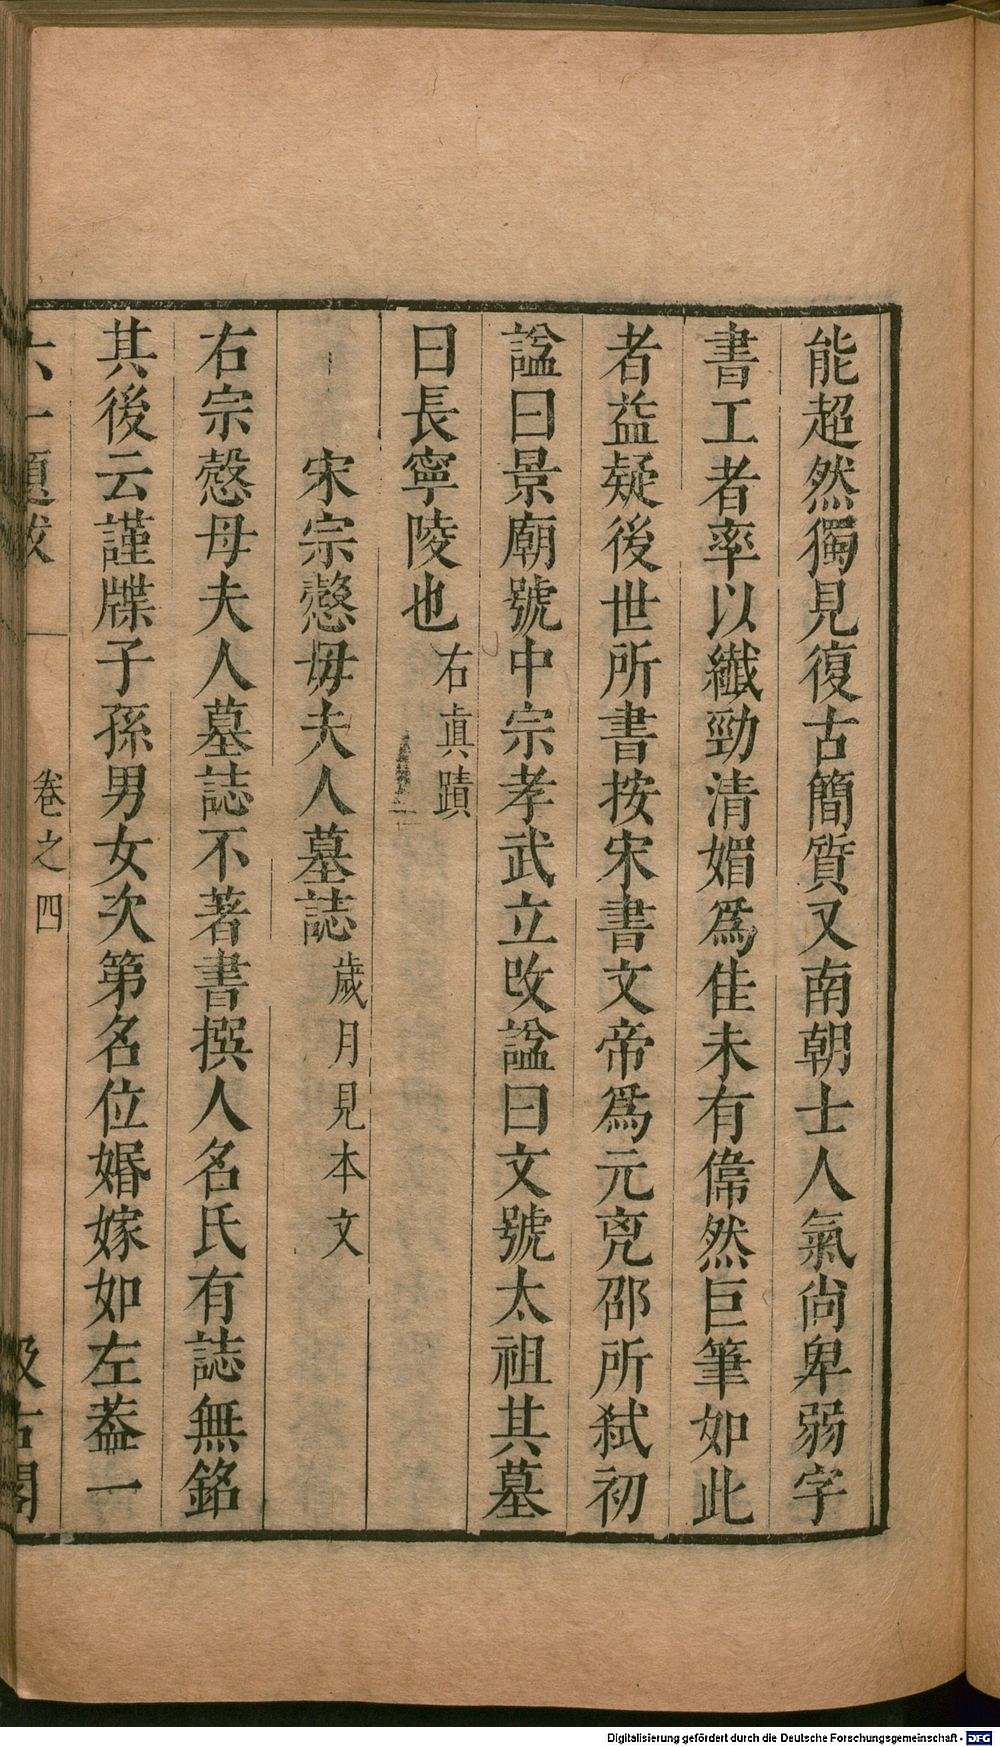 能超然獨見復古簡質又南朝士人氣尙卑弱字
書工者率以纖勁清媚爲佳未有偉然巨筆如此
者益疑後世所書按宋書文帝爲元兇邵所弑初
諡曰景廟號中宗孝武立改諡曰文號太祖其墓
曰長寧陵也右眞蹟
宋宗慤毋夫人墓誌歲月見本文
右宗慤母夫人墓誌不著書撰人名氏有誌無銘
其後云謹牒子孫男女次第名位婚嫁如左葢一
六一題跋 卷之四 汲古閣
Digitalisierung gefördert durch die Deutsche Forschungsgemeinschaft - DFG